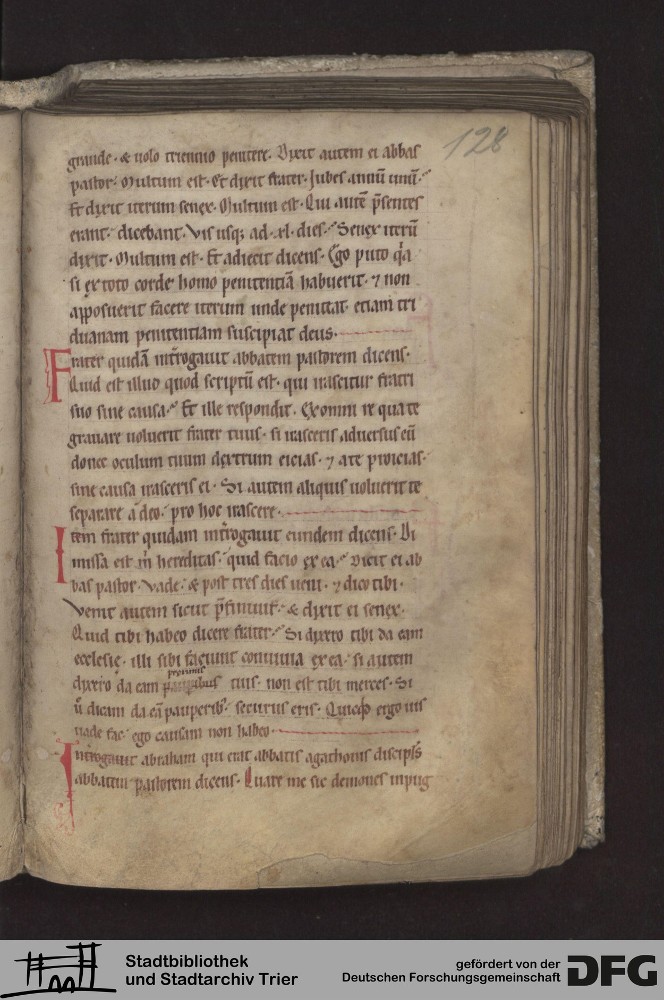 128
grande · & uolo triennio penitere · Dixit autem ei abbas
pastor · Multum est · Et dixit frater · Iubes annū unū ·
Et dixit iterum senex · Multum est · Qui autē p̄sentes
erant · dicebant · Vis usq; ad · xl · dies · Senex iterū
dixit · Multum est · Et adiecit dicens · Ego puto q̄a
si ex toto corde homo penitentiā habuerit · ⁊ non
apposuerit facere iterum unde penitat · etiam tri
duanam penitentiam suscipiat deus ·
Frater quidā int̄rogauit abbatem pastorem dicens ·
Quid est illud quod scriptū est · qui irascitur fratri
suo sine causa · Et ille respondit · Ex omni re qua te
grauare uoluerit frater tuus · si irasceris aduersus eū
donec oculum tuum dextrum eicias · ⁊ a te proicias ·
sine causa irasceris ei · Si autem aliquis uoluerit te
separare a deo · pro hoc irascere ·
Item frater quidam int̄rogauit eundem dicens · Di
missa est m̄ hereditas · quid facio ex ea · Dicit ei ab
bas pastor · Vade · & post tres dies ueni · ⁊ dico tibi ·
Venit autem sicut & dixit ei senex ·
Quid tibi habeo dicere frater · Si dixero tibi da eam
ecclesię · illi sibi faciunt conuiuia ex ea · si autem
proximis
dixero da eam tuis · non est tibi merces · Si
ū dicam da eā pauperib; securus eris · ergo uis
uade fac · ego causam non habeo ·
Int̄rogauit abraham qui erat abbatis agathonis
abbatem pastorem dicens · Quare me sic demones inpug
Stadtbibliothek
und Stadtarchiv Trier
gefördert von der
Deutschen Forschungsgemeinschaft
DFG